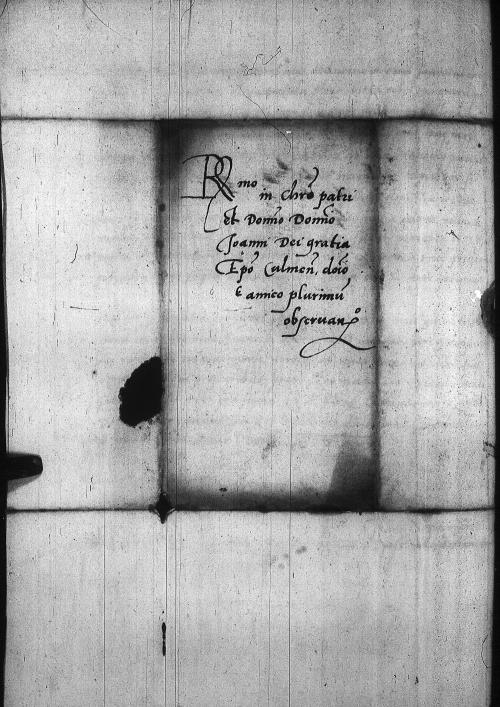 Rmo in Chro patri
et Domno Domno
Joanni Dei gratia
Epo Culmen. doio
et amico plurimu
obseruan.o